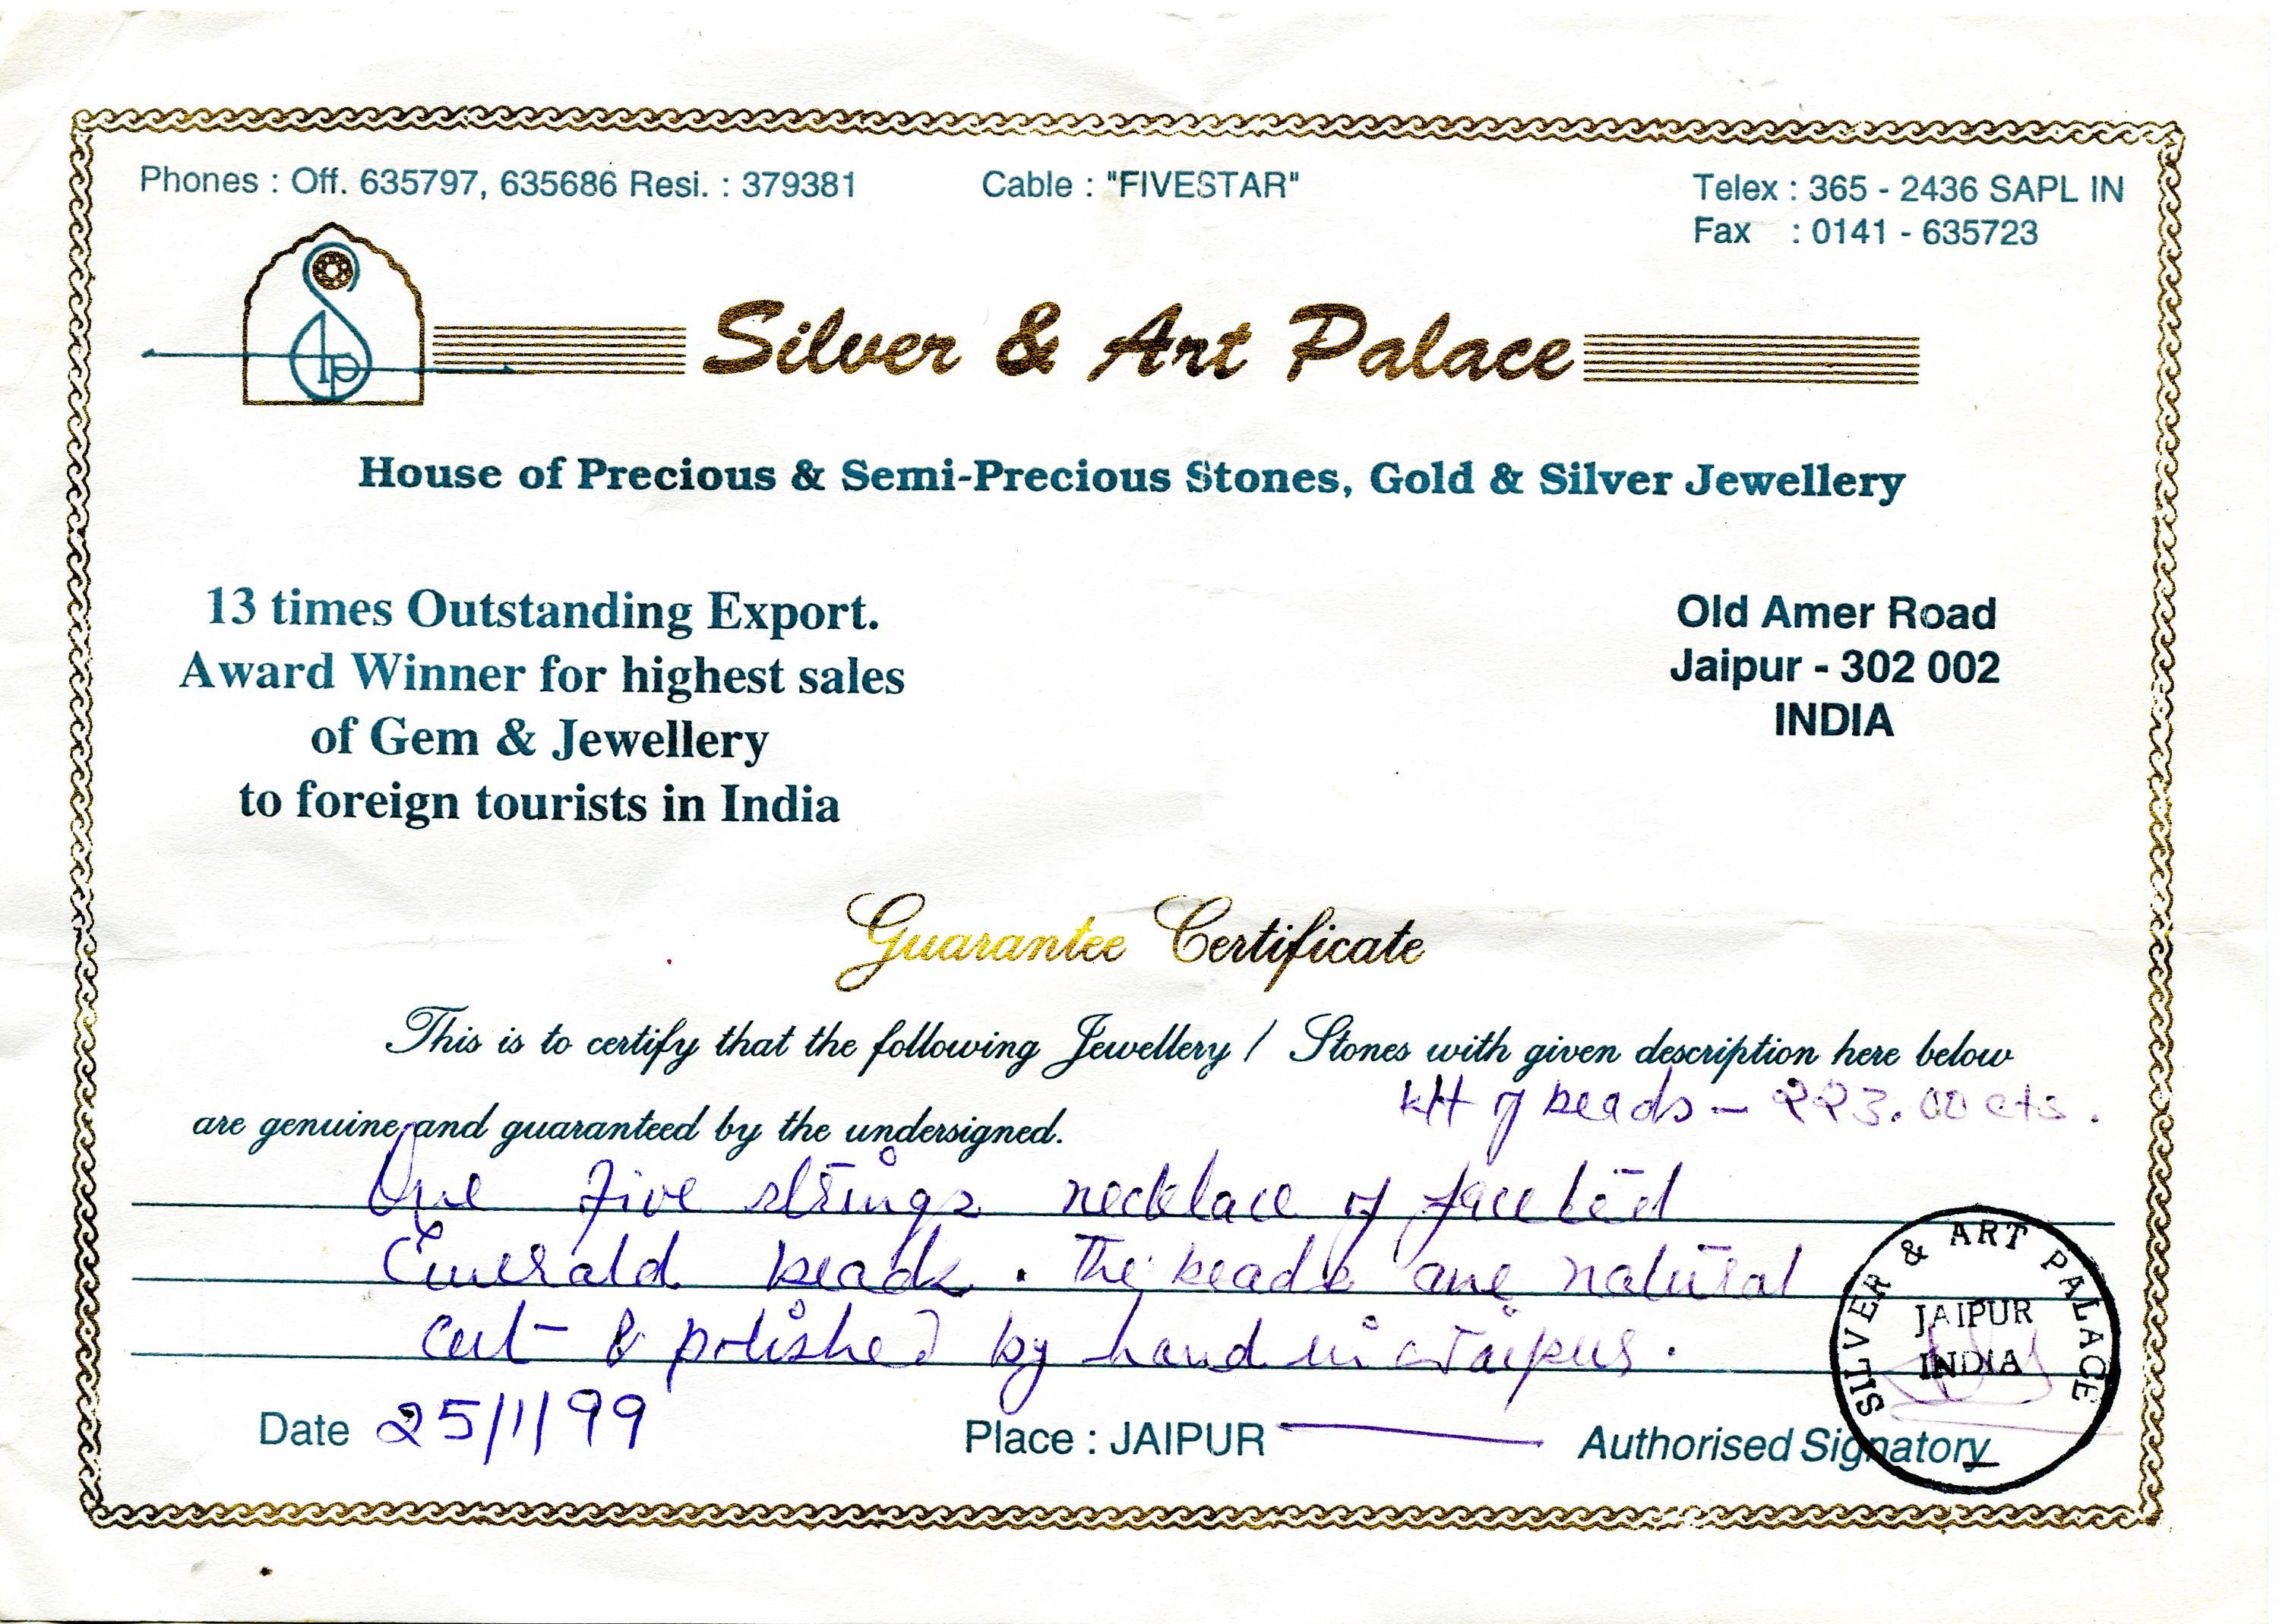 Phones : Off. 635797, 635686 Resi. : 379381 Cable : "FIVESTAR" Telex : 365 - 2436 SAPL IN
Fax : 0141 - 635723
Silver & Art Palace
House of Precious & Semi-Precious Stones, Gold & Silver Jewellery
13 times Outstanding Export.
Award Winner for highest sales
of Gem & Jewellery
to foreign tourists in India
Old Amer Road
Jaipur - 302 002
INDIA
Guarantee Certificate
This is to certify that the following Jewellery / Stones with given description here below
are genuine and guaranteed by the undersigned.
Wt of beads - 223.00 cts.
One five strings necklace of faceted
Emerald beads. The beads are natural
cut & polished by hand in Jaipur.
SILVER & ART PALACE
JAIPUR
INDIA
Date 25/1/99 Place : JAIPUR Authorised Signatory